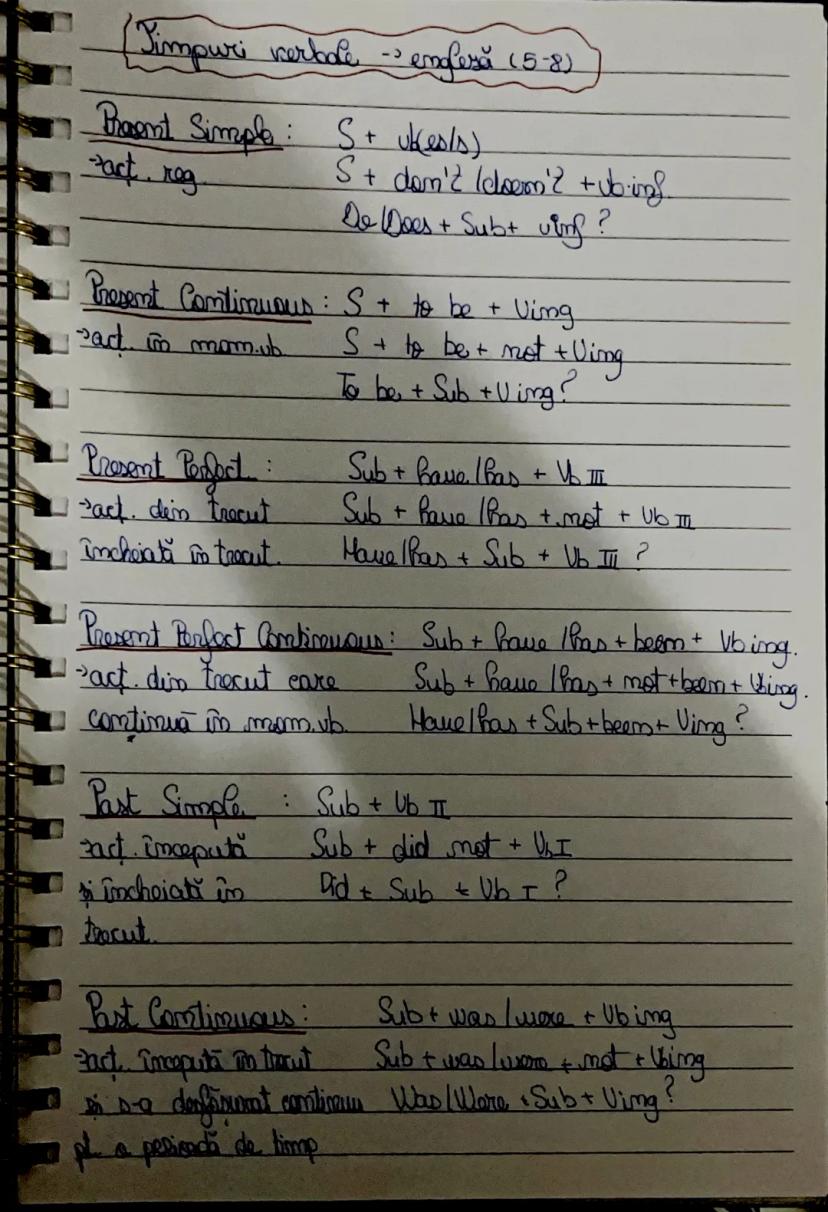 Timpuri verbale -> engleză (5-8)
Present Simple : S + vb(es/s)
->acț. reg. S + don't /doesn't + vb.inf.
Do/Does + Sub + vinf ?
Present Continuous : S + to be + Ving
->acț. în mom.vb. S + to be + not + Ving
To be + Sub + Ving?
Present Perfect : Sub + have /has + Vb III
->acț. din trecut Sub + have /has + not + Vb III
încheiată în trecut. Have/has + Sub + Vb III ?
Present Perfect Continuous : Sub + have /has + been + Vb ing.
->acț. din trecut care Sub + have /has + not + been + Vbing.
continuă în mom.vb. Have/has + Sub + been + Ving ?
Past Simple : Sub + Vb II
->acț. începută Sub + did not + Vb I
și încheiată în Did + Sub + Vb I ?
trecut.
Past Continuous : Sub + was /were + Vb ing
->acț. începută în trecut Sub + was /were + not + Vbing
și s-a desfășurat continuu Was/Were + Sub + Ving ?
pt. o perioadă de timp